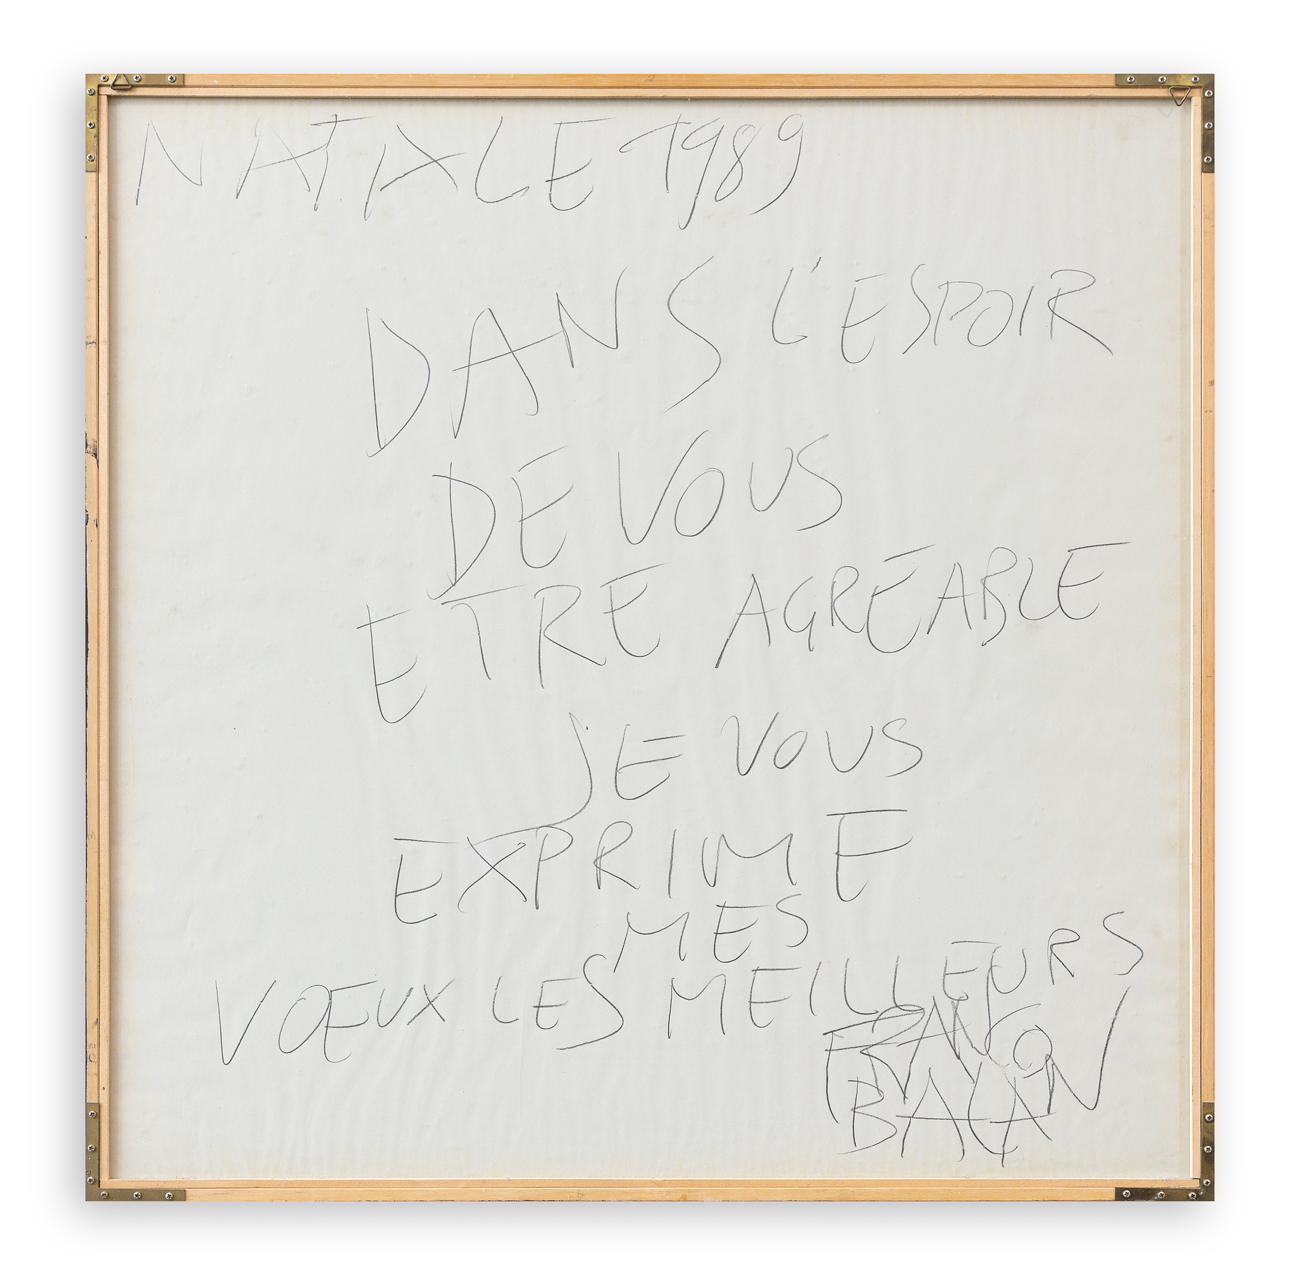 NATALE 1989
DANS L'ESPOIR
DE VOUS
ETRE AGREABLE
JE VOUS
EXPRIME
MES
VOEUX LES MEILLEURS